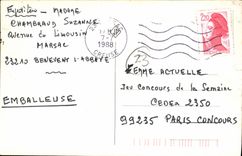 Expéditeur = MADAME
CHAMBRAUD SUZANNE
Avenue du Limousin
MARSAC
23210 BENEVENT L'ABBAYE
EMBALLEUSE
1988
CREUSE
2,20
FEMME ACTUELLE
Jeu Concours de la Semaine
CEDEX 2350
99235 PARIS CONCOURS